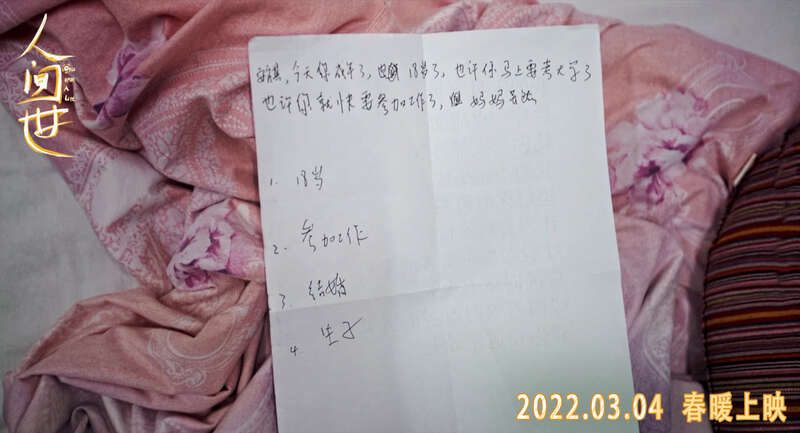 人间世
Once upon a Life
安祺，今天你成年了，也就18岁了，也许你马上要考大学了
也许你就快要参加工作了，但妈妈无法
1. 18岁
2. 参加工作
3. 结婚
4. 生子
2022.03.04 春暖上映